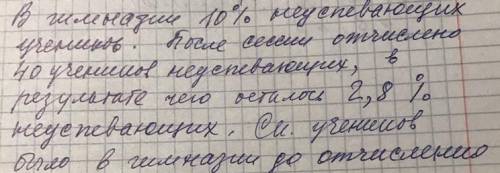 В гимназии 10% неуспевающих
учеников. После сессии отчислено
40 учеников неуспевающих, в
результате чего осталось 2,8 %
неуспевающих. Ск. учеников
было в гимназии до отчисления